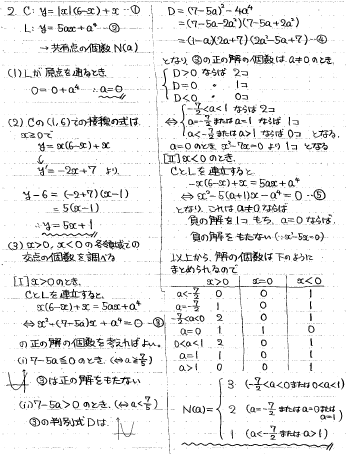 2. C: y=|x|(6-x)+x …①
L: y=5ax+a⁴ …②
→ 共有点の個数 N(a)
(1) Lが原点を通るとき
0=0+a⁴ ∴a=0
(2) Cの(1,6)での接線の式は
x≧0で
y=x(6-x)+x
y'=-2x+7 より
y-6=(-2+7)(x-1)
=5(x-1)
∴y=5x+1
(3) x>0, x<0の各領域での
交点の個数を調べる
[I] x>0のとき、
CとLを連立すると、
x(6-x)+x=5ax+a⁴
⇔x²+(7-5a)x+a⁴=0 …③
の正の解の個数を考えればよい。
(i) 7-5a≦0のとき、(⇔a≧7/5)
③は正の解をもたない
(ii) 7-5a>0のとき、(⇔a<7/5)
③の判別式Dは、
D=(7-5a)²-4a⁴
=(7-5a-2a²)(7-5a+2a²)
=(1-a)(2a+7)(2a²-5a+7) …④
となり ③の正の解の個数は、a≠0のとき
D>0 ならば 2コ
D=0 〃 1コ
D<0 〃 0コ
⇔ -7/2<a<1 ならば 2コ
a=-7/2 または a=1 ならば 1コ
a<-7/2 または a>1 ならば 0コ となる.
a=0のとき、x²-7x=0 より 1コ となる
[II] x<0のとき、
CとLを連立すると
-x(6-x)+x=5ax+a⁴
⇔x²-5(a+1)x-a⁴=0 …⑤
となり、これは a≠0ならば
負の解を1コもち、a=0ならば、
負の解をもたない(∵x²-5x=0)
以上から、解の個数は下のように
まとめられるので
x>0 x=0 x<0
a<-7/2 0 0 1
a=-7/2 1 0 1
-7/2<a<0 2 0 1
a=0 1 1 0
0<a<1 2 0 1
a=1 1 0 1
a>1 0 0 1
3 (-7/2<a<0または0<a<1)
N(a)= 2 (a=-7/2 またはa=0またはa=1)
1 (a<-7/2 またはa>1)